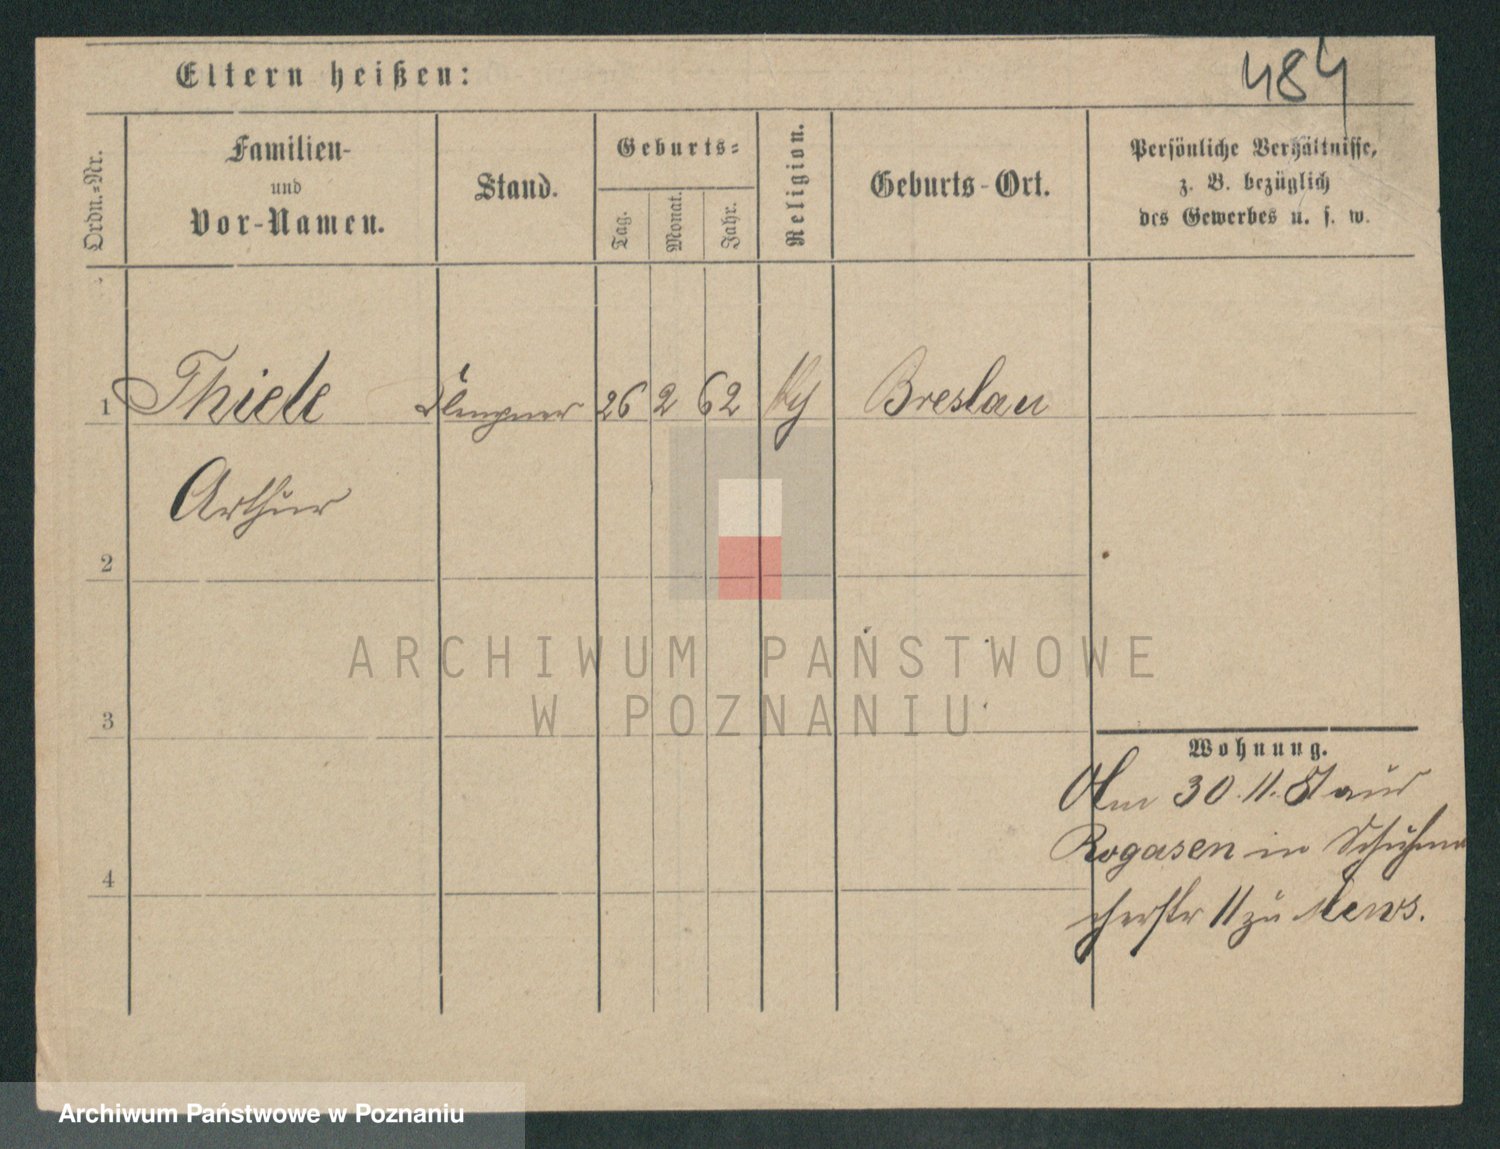 484
Eltern heißen:
Ordn.-Nr.
Familien-
und
Vor-Namen.
Stand.
Geburts-
Tag.
Monat.
Jahr.
Religion.
Geburts-Ort.
Persönliche Verhältnisse,
z. B. bezüglich
des Gewerbes u. s. w.
1 Thiele Klempner 26 2 62 Breslau
Arthur
2
3
4
Wohnung.
Am 30.11. aus
Rogasen in Schuhma
cherstr 11 zu
ARCHIWUM PAŃSTWOWE
W POZNANIU
Archiwum Państwowe w Poznaniu